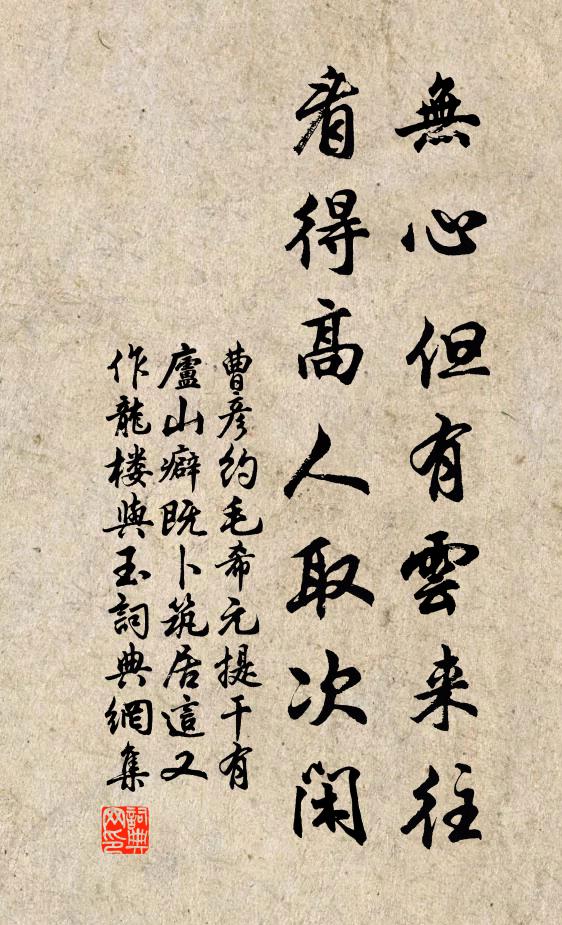 無心但有雲来往
看得高人取次閑
曹彦約毛希元提干有
廬山癖既卜筑居這又
作龍楼與玉詞典網集
詞典
网印